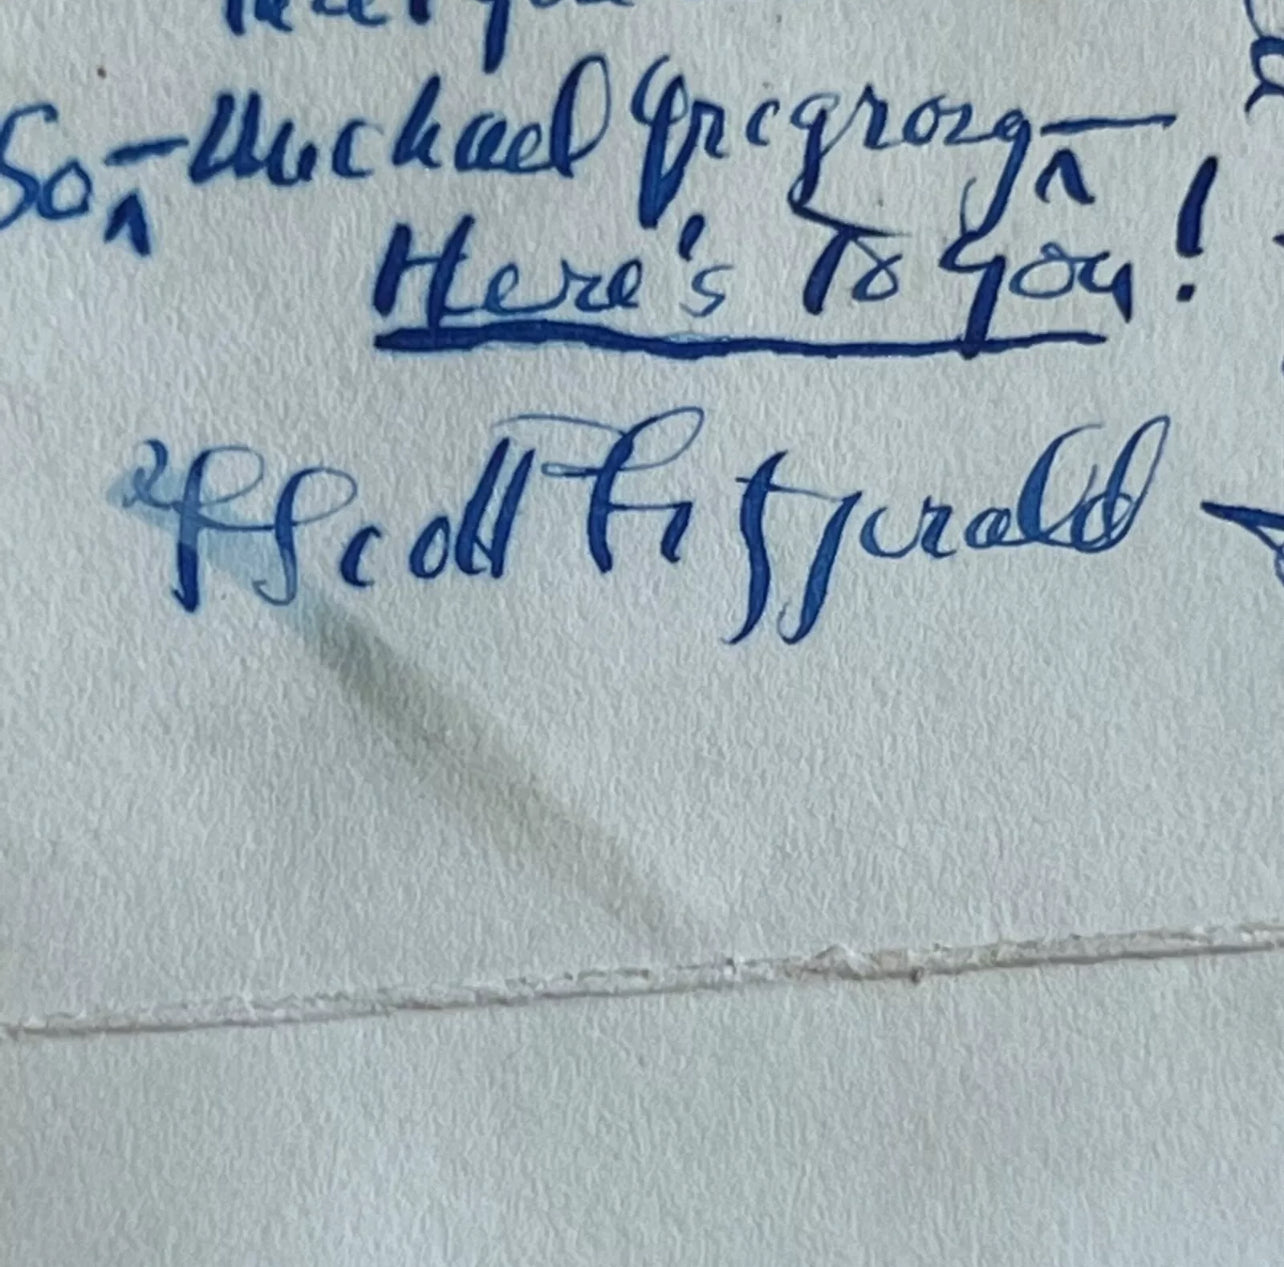 So – Michael
Here's To you!
F Scott Fitzgerald